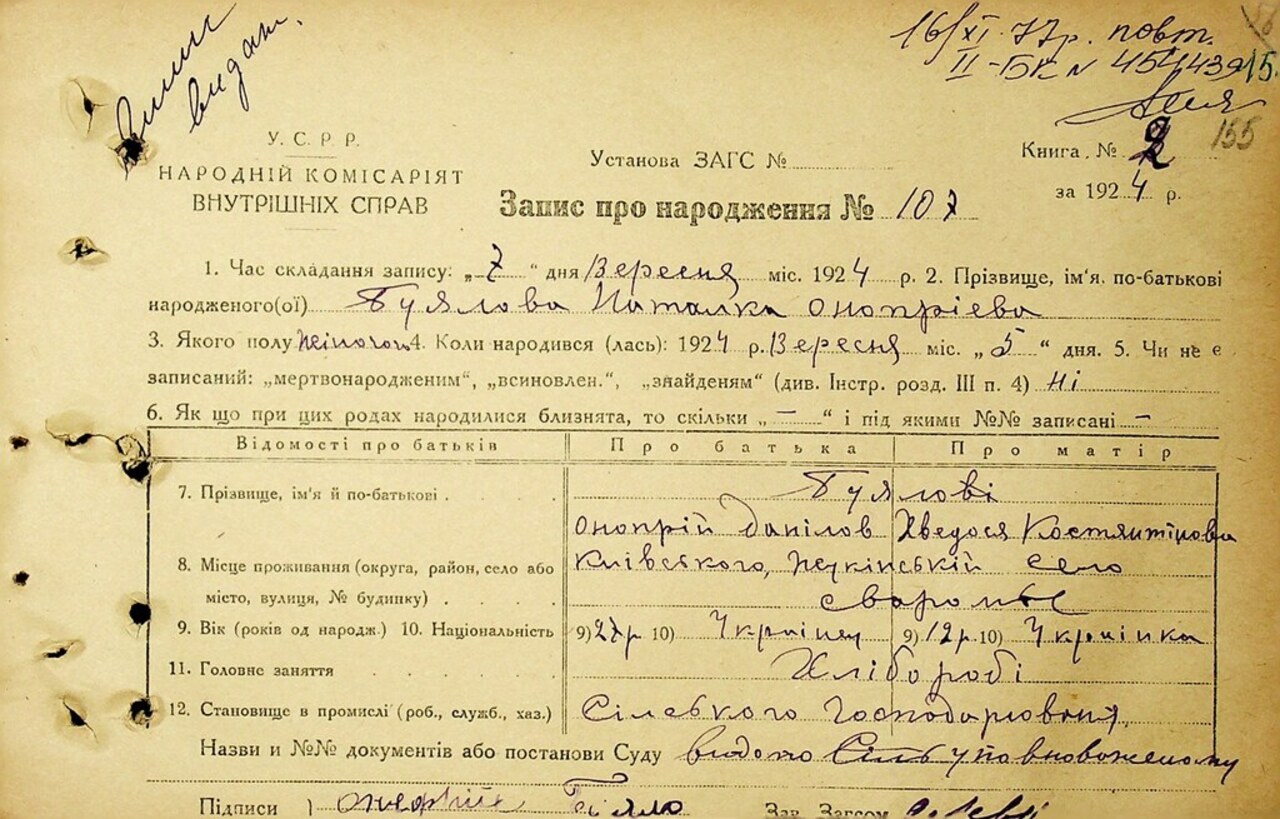 видан.
16/XI-77р. повт.
II-БК № 454439
15.
155
У. С. Р. Р.
НАРОДНІЙ КОМІСАРІЯТ
ВНУТРІШНІХ СПРАВ
Установа ЗАГС №
Книга № 2
за 1924 р.
Запис про народження № 107
1. Час складання запису: „7“ дня Вересня міс. 1924 р. 2. Прізвище, ім'я. по-батькові
народженого(ої) Гуялова Наталка Онопрієва
3. Якого полу 4. Коли народився (лась): 1924 р. Вересня міс. „5“ дня. 5. Чи не є
записаний: „мертвонародженим“, „всиновлен.“, „знайденям“ (див. Інстр. розд. III п. 4) Ні
6. Як що при цих родах народилися близнята, то скільки „—“ і під якими №№ записані —
Відомості про батьків Про батька Про матір
7. Прізвище, ім'я й по-батькові . Гуялові
Онопрій Данілов Хведося Костянтінова
8. Місце проживання (округа, район, село або Київського, село
місто, вулиця, № будинку) . . . . Сваромье
9. Вік (років од народж.) 10. Національність 9) 27р 10) Українец 9) 19р. 10) Українка
11. Головне заняття . . . . . Хлібороби
12. Становище в промислі (роб., служб., хаз.) Сільського Господарювання,
Назви и №№ документів або постанови Суду видано Сіль уповноваженому
Підписи } Зав. Загсом